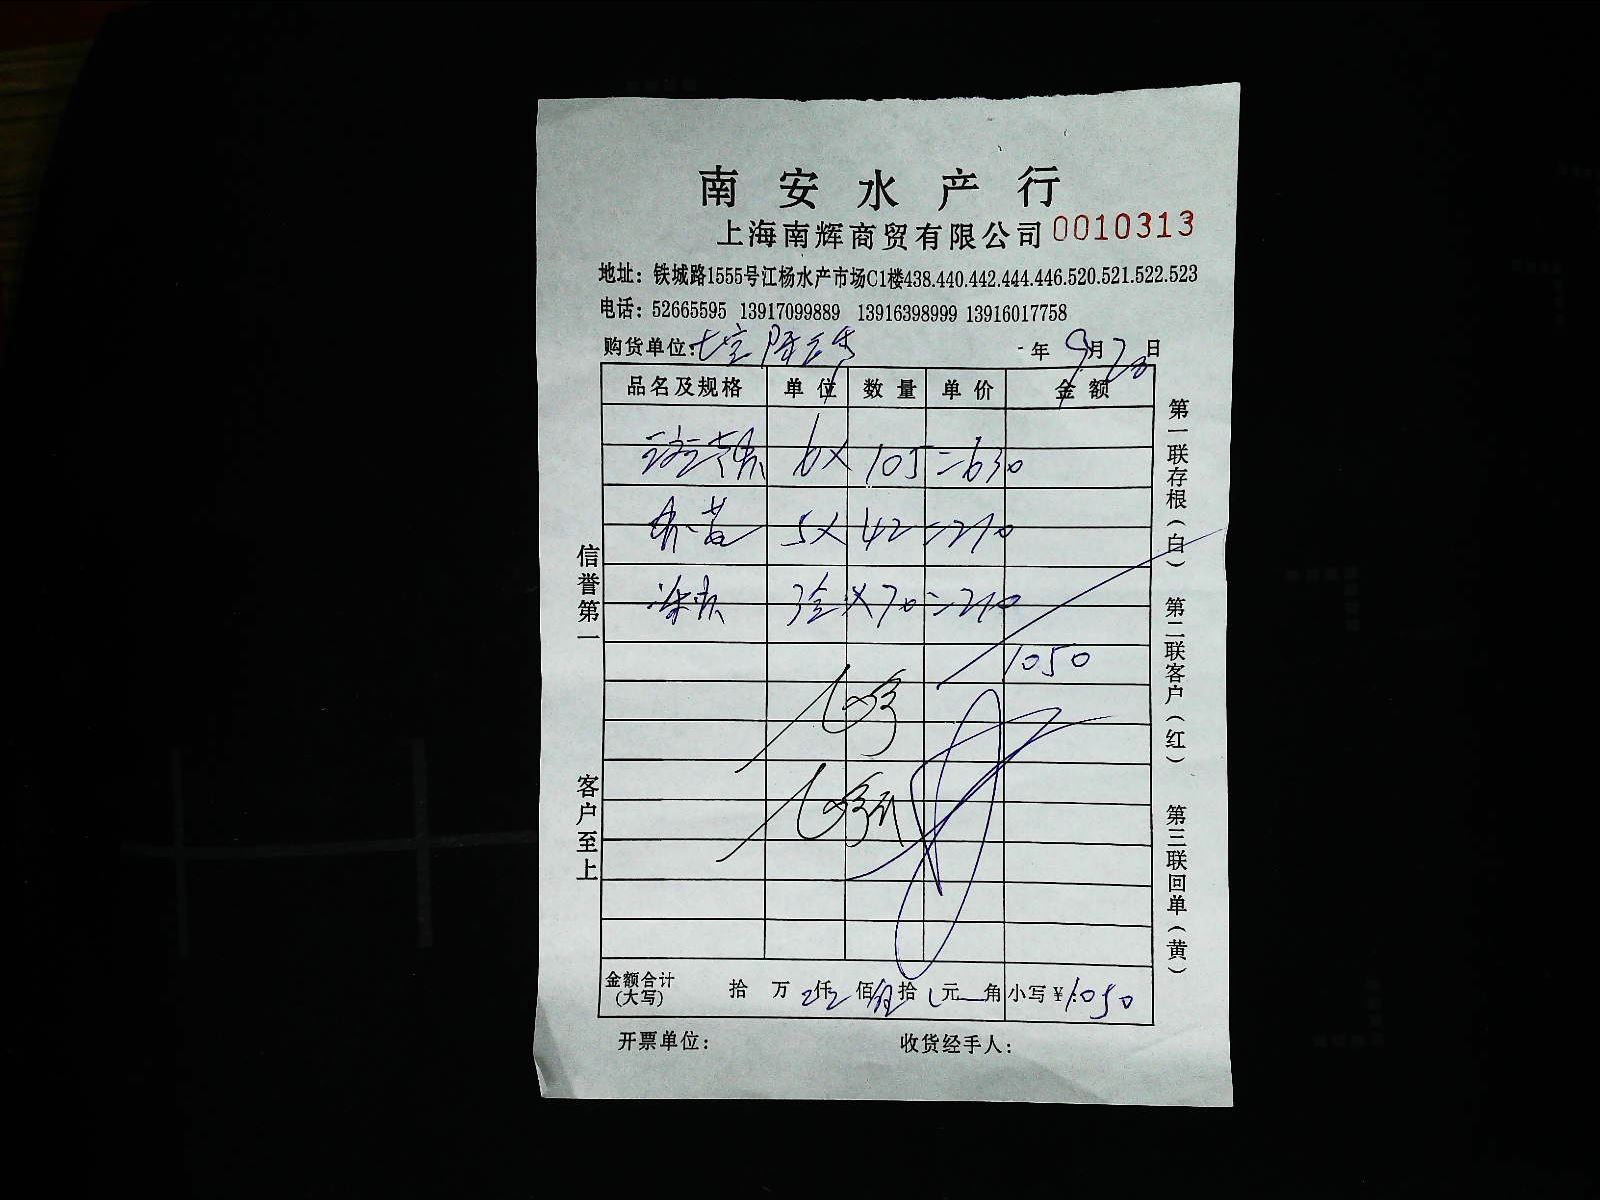 南安水产行
上海南辉商贸有限公司 0010313
地址：铁城路1555号江杨水产市场C1楼438.440.442.444.446.520.521.522.523
电话：52665595 13917099889 13916398999 13916017758
购货单位：
年 9月20日
品名及规格 单位 数量 单价 金额
6× 105=630
5× 42=210
3 ×70=210
1050
金额合计(大写) 拾 万 仟 佰 伍拾 元 角 小写￥:1050
开票单位： 收货经手人：
信誉第一
客户至上
第一联存根(白) 第二联客户(红) 第三联回单(黄)